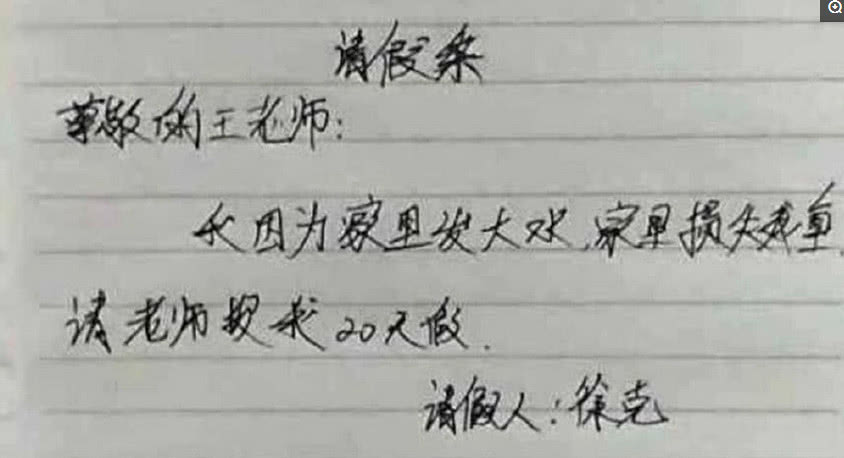 请假条
尊敬的王老师：
我因为家里发大水，家里损失惨重，
请老师批我20天假．
请假人：徐克